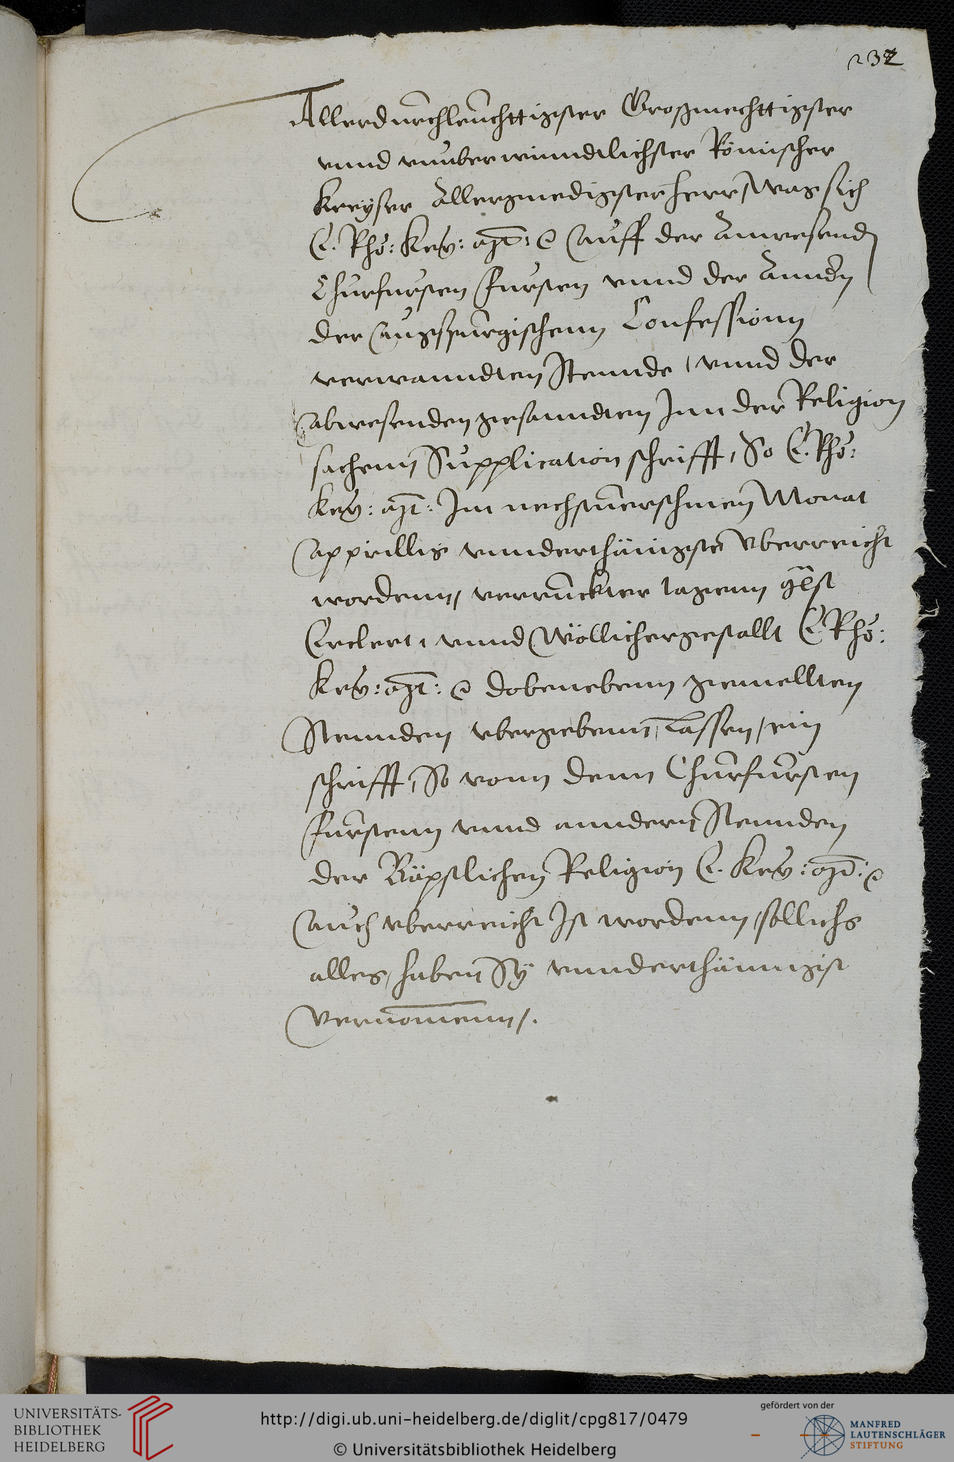 232
Allerdurchleuchttigster Großmechttigster
vnnd vnuberwinndtlichster Römischer
Keyser Allergnedigster herr, Was sich
E. Rhö: Key: Mt: auff der Anwesend
Churfursten fursten vnnd der Anndn
der augspurgischenn Confessionn
verwanndten Stennde, vnnd der
abwesenden gesanndten Inn der Religion
sachenn Supplication schrifft, So E. Rhö:
Key: Mt: Im nechstuerschinen Monat
Apprillis vnnderthänigste vberreicht
wordenn, verruckter tagenn
Erclert, vnnd Wöllichergestallt E Rhö:
Key: Mt: dobenebenn gemellten
Stennden vbergebenn, Lassen, ein
schrifft, So vonn denn Churfursten
furstenn vnnd anndern Stennden
der Bäpstlichen Religion E. Key: Mt:
auch vberreicht Ist wordenn, sollichs
alles, haben Sy vnnderthännigist
Vernomenn,.
UNIVERSITÄTS-
BIBLIOTHEK
HEIDELBERG
http://digi.ub.uni-heidelberg.de/diglit/cpg817/0479
© Universitätsbibliothek Heidelberg
gefördert von der
MANFRED
LAUTENSCHLÄGER
STIFTUNG